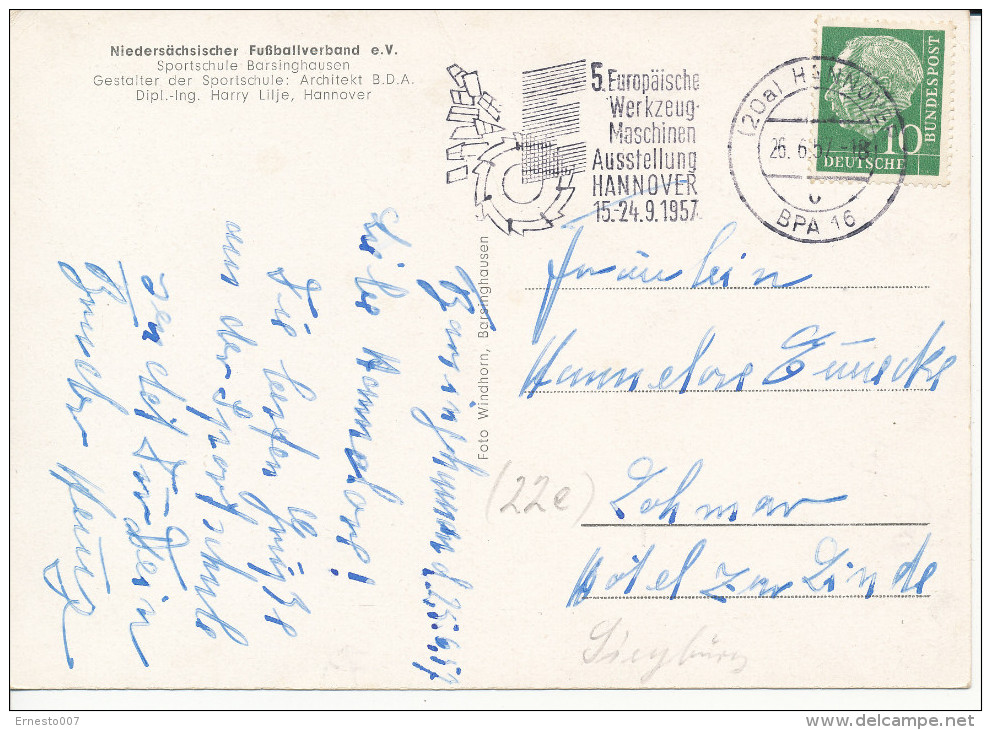 Niedersächsischer Fußballverband e.V.
Sportschule Barsinghausen
Gestalter der Sportschule: Architekt B.D.A.
Dipl.-Ing. Harry Lilje, Hannover
5. Europäische
Werkzeug-
Maschinen
Ausstellung
HANNOVER
15.-24.9.1957
(20a) HANNOVER
26.6.57
BPA 16
10
DEUTSCHE
BUNDESPOST
Foto Windhorn, Barsinghausen
Barsinghausen d. 25.6.57
Liebe Hannelore!
Die besten Grüße
von der Sportschule
sendet Dir Dein
Bruder Heinz
Fräulein
Hannelore
(22c) Lohmar
Hotel zur Linde
Siegburg
Ernesto007
delcampe.net